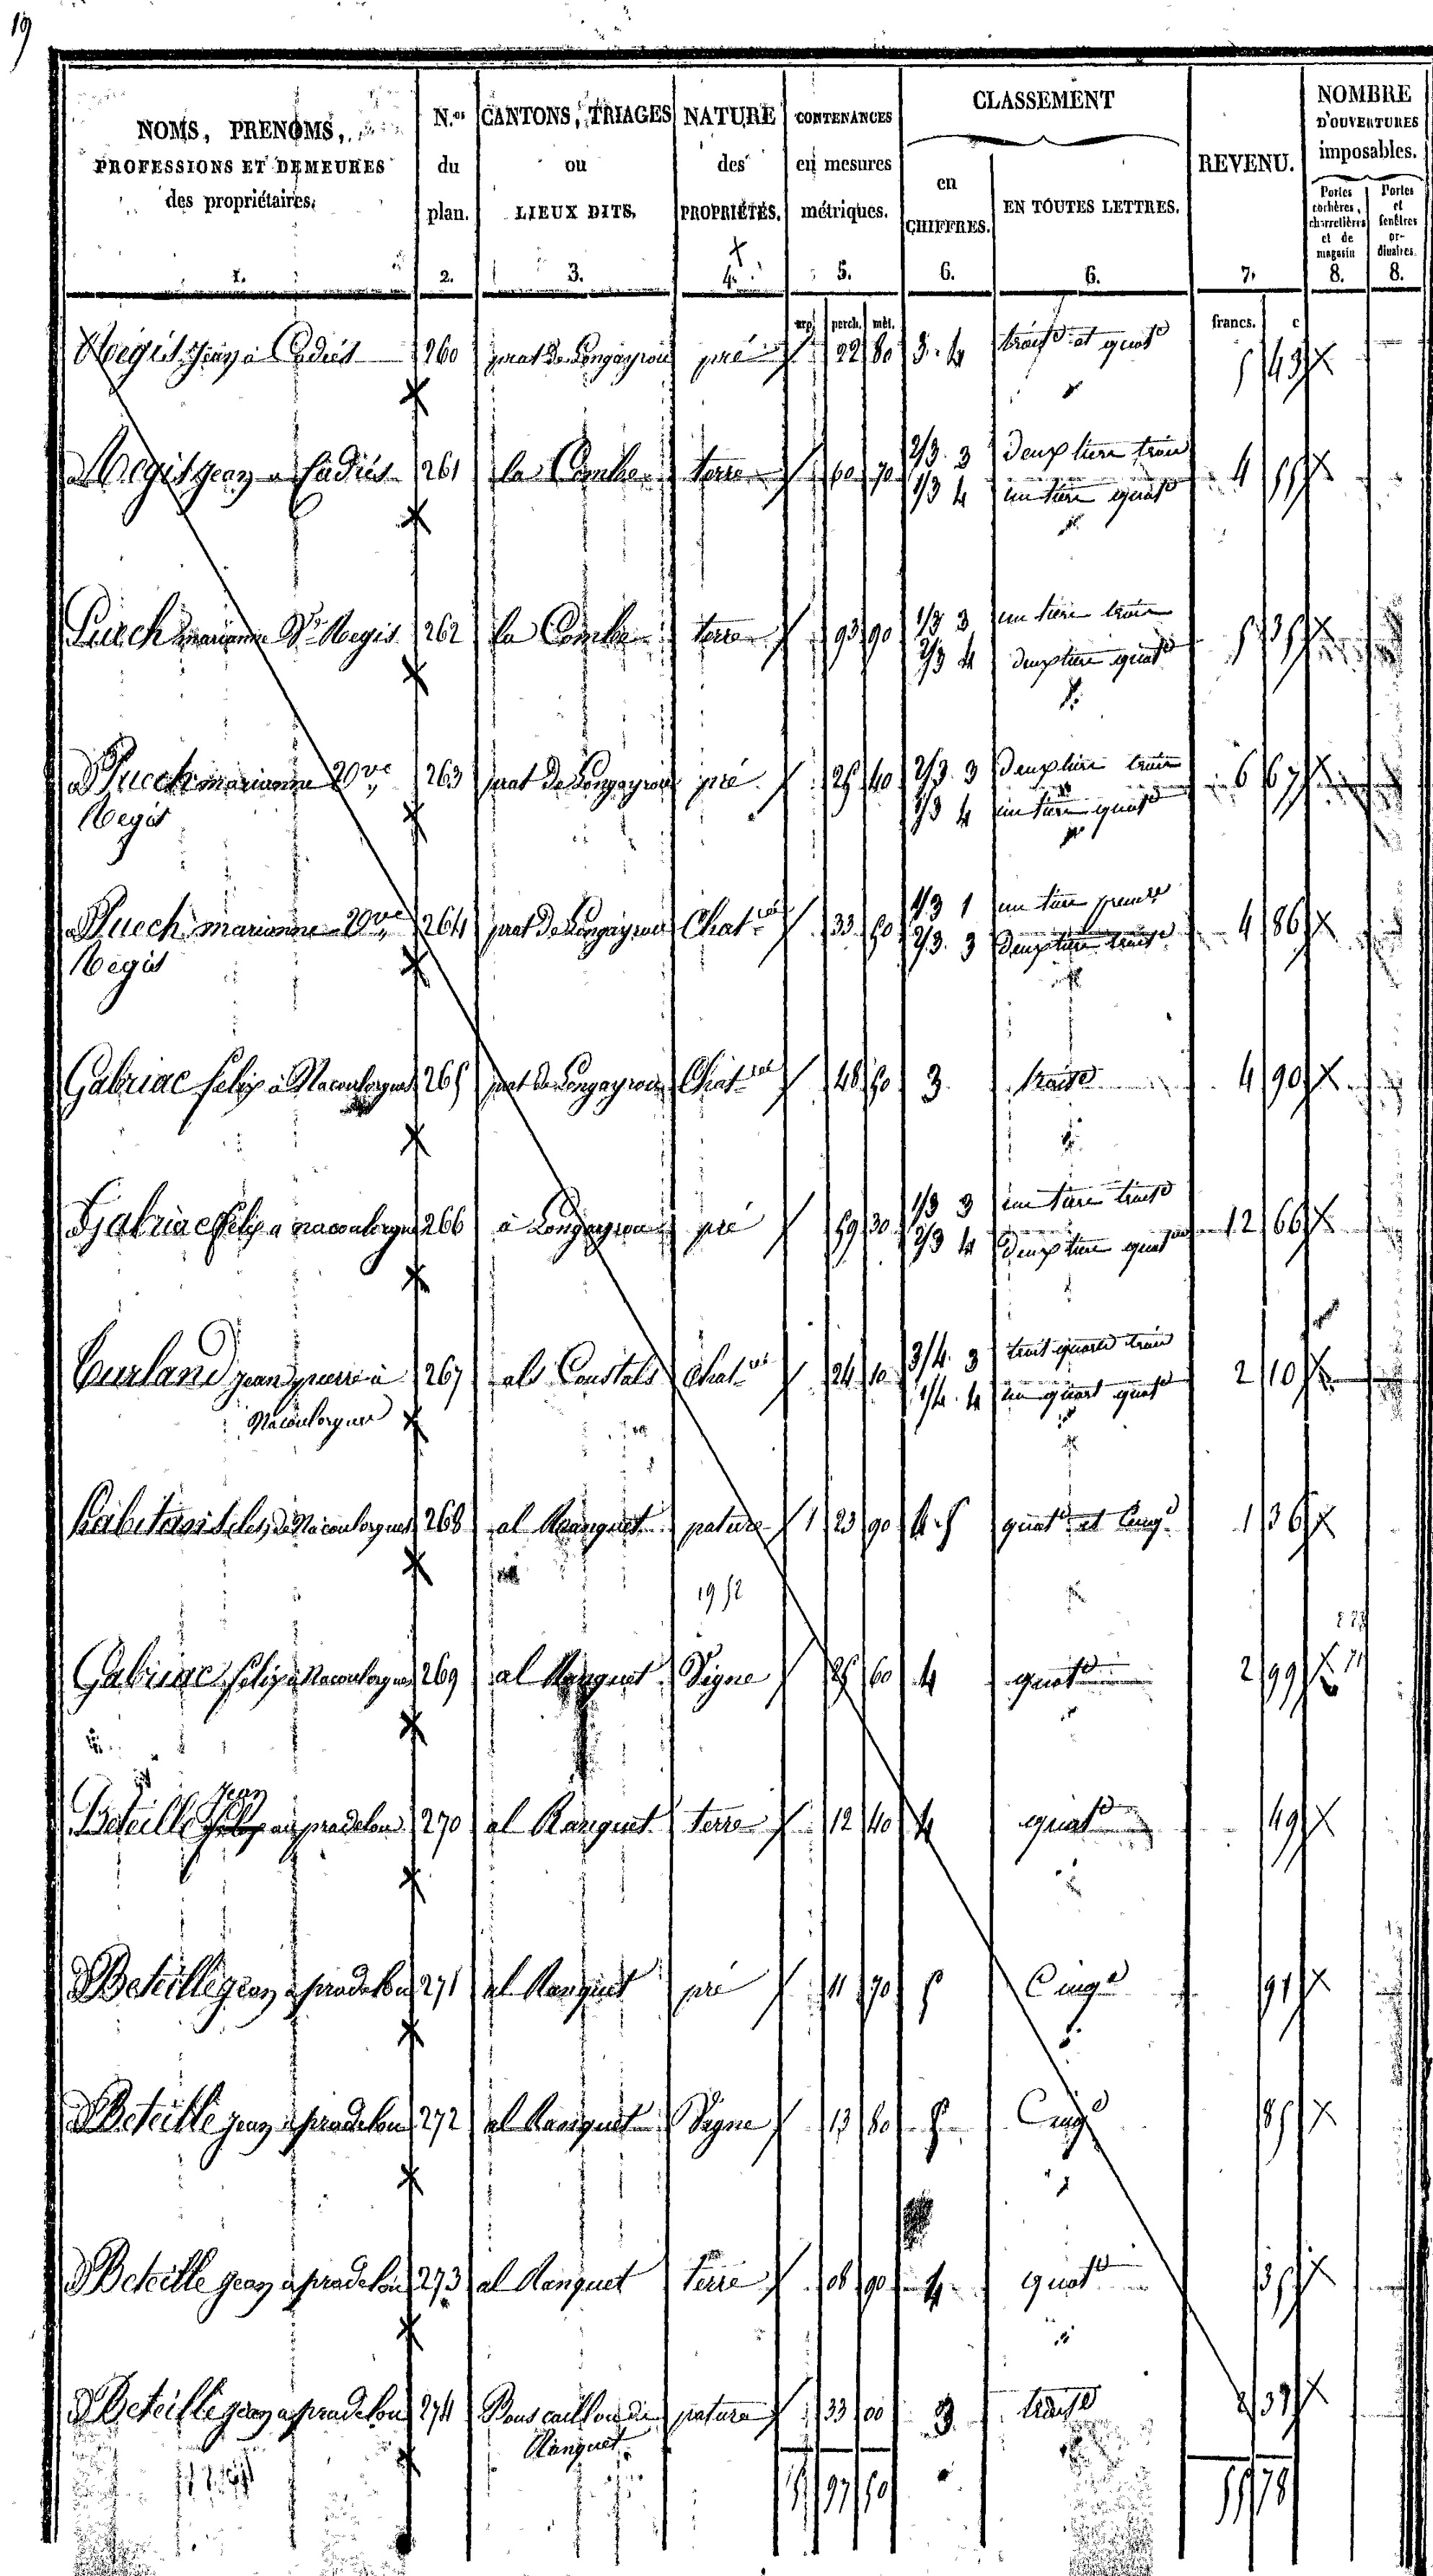 19
NOMS, PRENOMS,
PROFESSIONS ET DEMEURES
des propriétaires.
1.
N.os
du
plan.
2.
CANTONS, TRIAGES
ou
LIEUX DITS.
3.
NATURE
des
PROPRIÉTÉS.
4.
CONTENANCES
en mesures
métriques.
5.
CLASSEMENT
en
CHIFFRES.
6.
EN TOUTES LETTRES.
6.
REVENU.
7.
NOMBRE
D'OUVERTURES
imposables.
Portes
cochères,
charretières
et de
magasin
8.
Portes
et
fenêtres
or-
dinaires.
8.
arp. perch. mèt. francs. c
Regis Jean à Cadiés 260 prat de Longayrou pré 22 80 3. 4 trois.e et quat.e 5 43
Regis Jean a Cadiés 261 la Combe terre 60 70 2/3. 3 Deux tiers trois 4 55
1/3 4 un tiers quat.e
Puech marianne V.e Regis 262 la Combe terre 93 90 1/3 3 un tiers trois 5 35
2/3 4 deux tiers quat.e
Puech marianne V.ve 263 prat de Longayrou pré 25 40 2/3. 3 Deux tiers trois 6 67
Regis 1/3 4 un tiers quat.e
Puech marianne V.ve 264 prat de Longayrou Chat. 33 50 1/3 1 un tiers 4 86
Regis 2/3. 3 Deux tiers trois.e
Gabriac felix à Naconlorgues 265 prat de Longayrou Chat. 48 50 3 trois.e 4 90
Gabriac felix a naconlorgues 266 à Longayrou pré 59 30 1/3 3 un tiers trois.e 12 66
2/3 4 Deux tiers quat.e
Curland jean pierre à 267 als Coustals Chat. 24 10 3/4. 3 trois quarts trois 2 10
Naconlorgues 1/4. 4 un quart quat.e
à Naconlorgues 268 al Ranquet pature 1 23 90 4. 5 quat.e et Cinq.e 1 36
1952
Gabriac felix à Naconlorgues 269 al Ranquet Vigne 85 60 4 quat.e 2 99
Jean
Beteille au pradelou 270 al Ranquet terre 12 40 4 quat.e 49
Beteille jean a pradelou 271 al Ranquet pré 11 70 5 Cinq.e 91
Beteille jean a pradelou 272 al Ranquet Vigne 13 80 5 Cinq.e 85
Beteille jean a pradelou 273 al Ranquet terre 08 90 4 quat.e 35
Beteille jean a pradelou 274 Bouscaillou du pature 33 00 3. trois.e 2 37
Ranquet
55 78